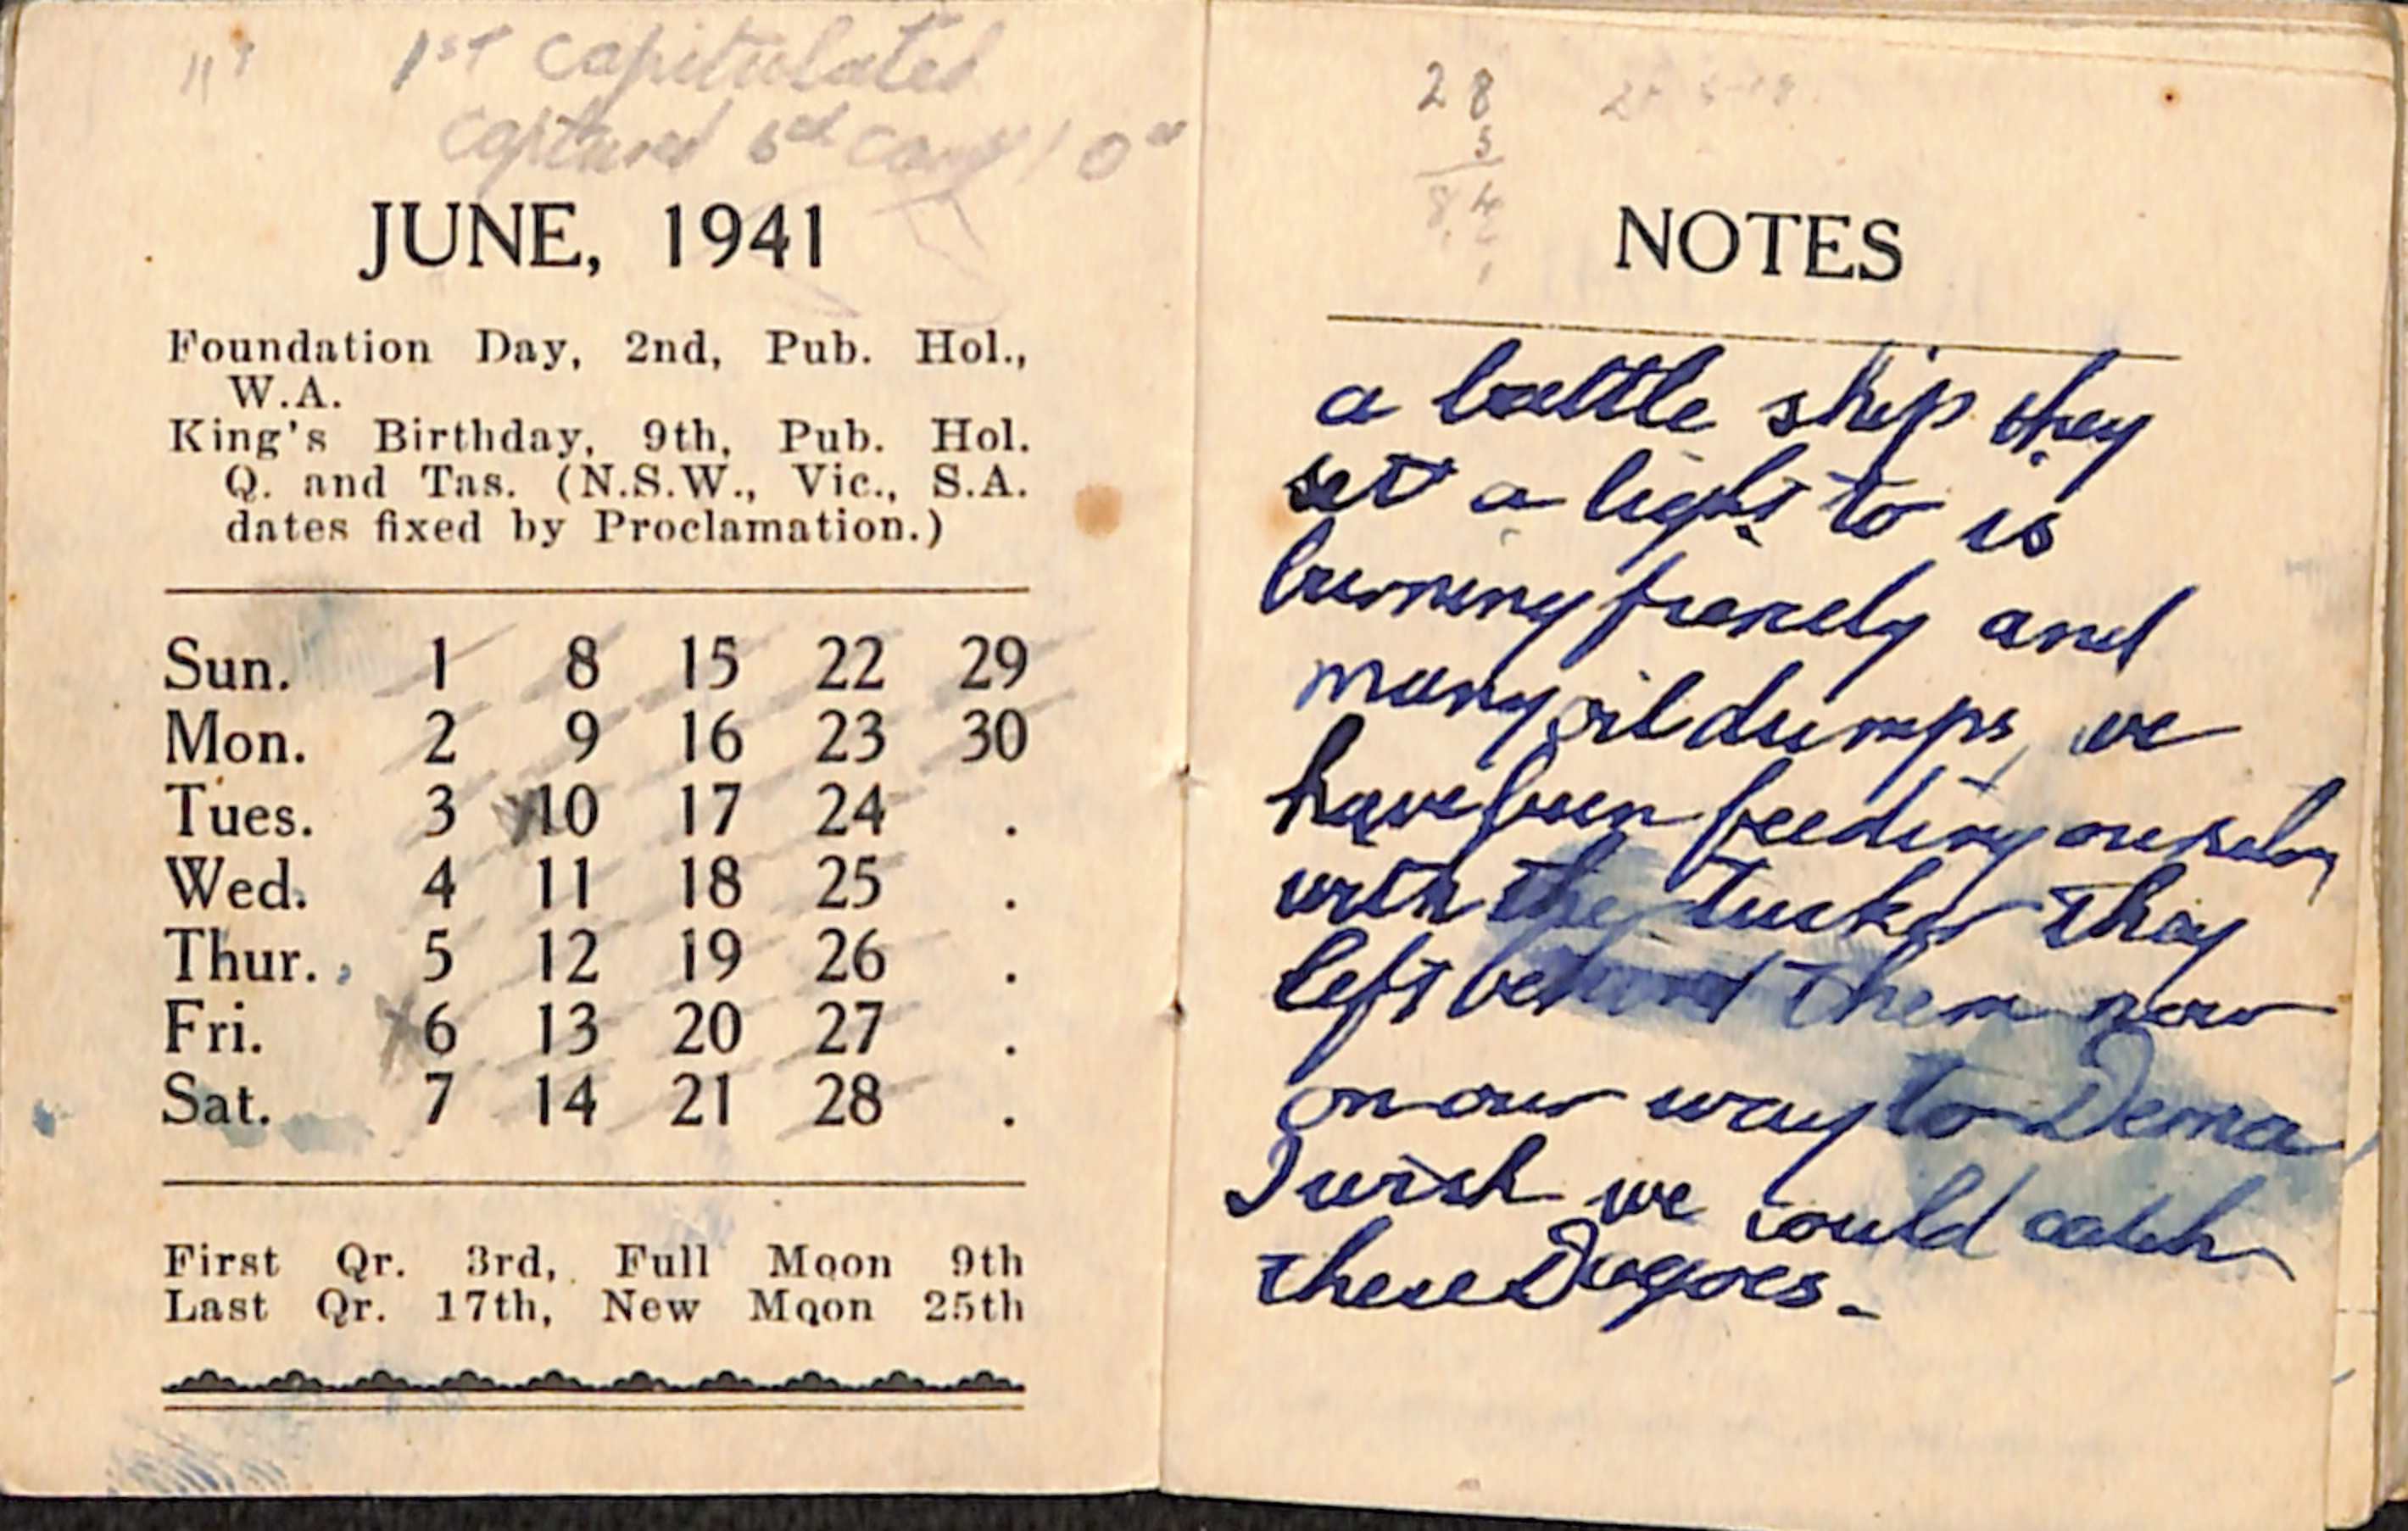 1st capitulated
captured 6th camp 10
JUNE, 1941
Foundation Day, 2nd, Pub. Hol.,
W.A.
King's Birthday, 9th, Pub. Hol.
Q. and Tas. (N.S.W., Vic., S.A.
dates fixed by Proclamation.)
Sun. 1 8 15 22 29
Mon. 2 9 16 23 30
Tues. 3 10 17 24 .
Wed. 4 11 18 25 .
Thur. 5 12 19 26 .
Fri. 6 13 20 27 .
Sat. 7 14 21 28 .
First Qr. 3rd, Full Moon 9th
Last Qr. 17th, New Moon 25th
28
5
84
NOTES
a battle ship they
set a light to is
burning fiercely and
many oil dumps, we
have been feeding ourselves
with the tucker they
left behind them now
on our way to Derna
I wish we could catch
these Dagoes.